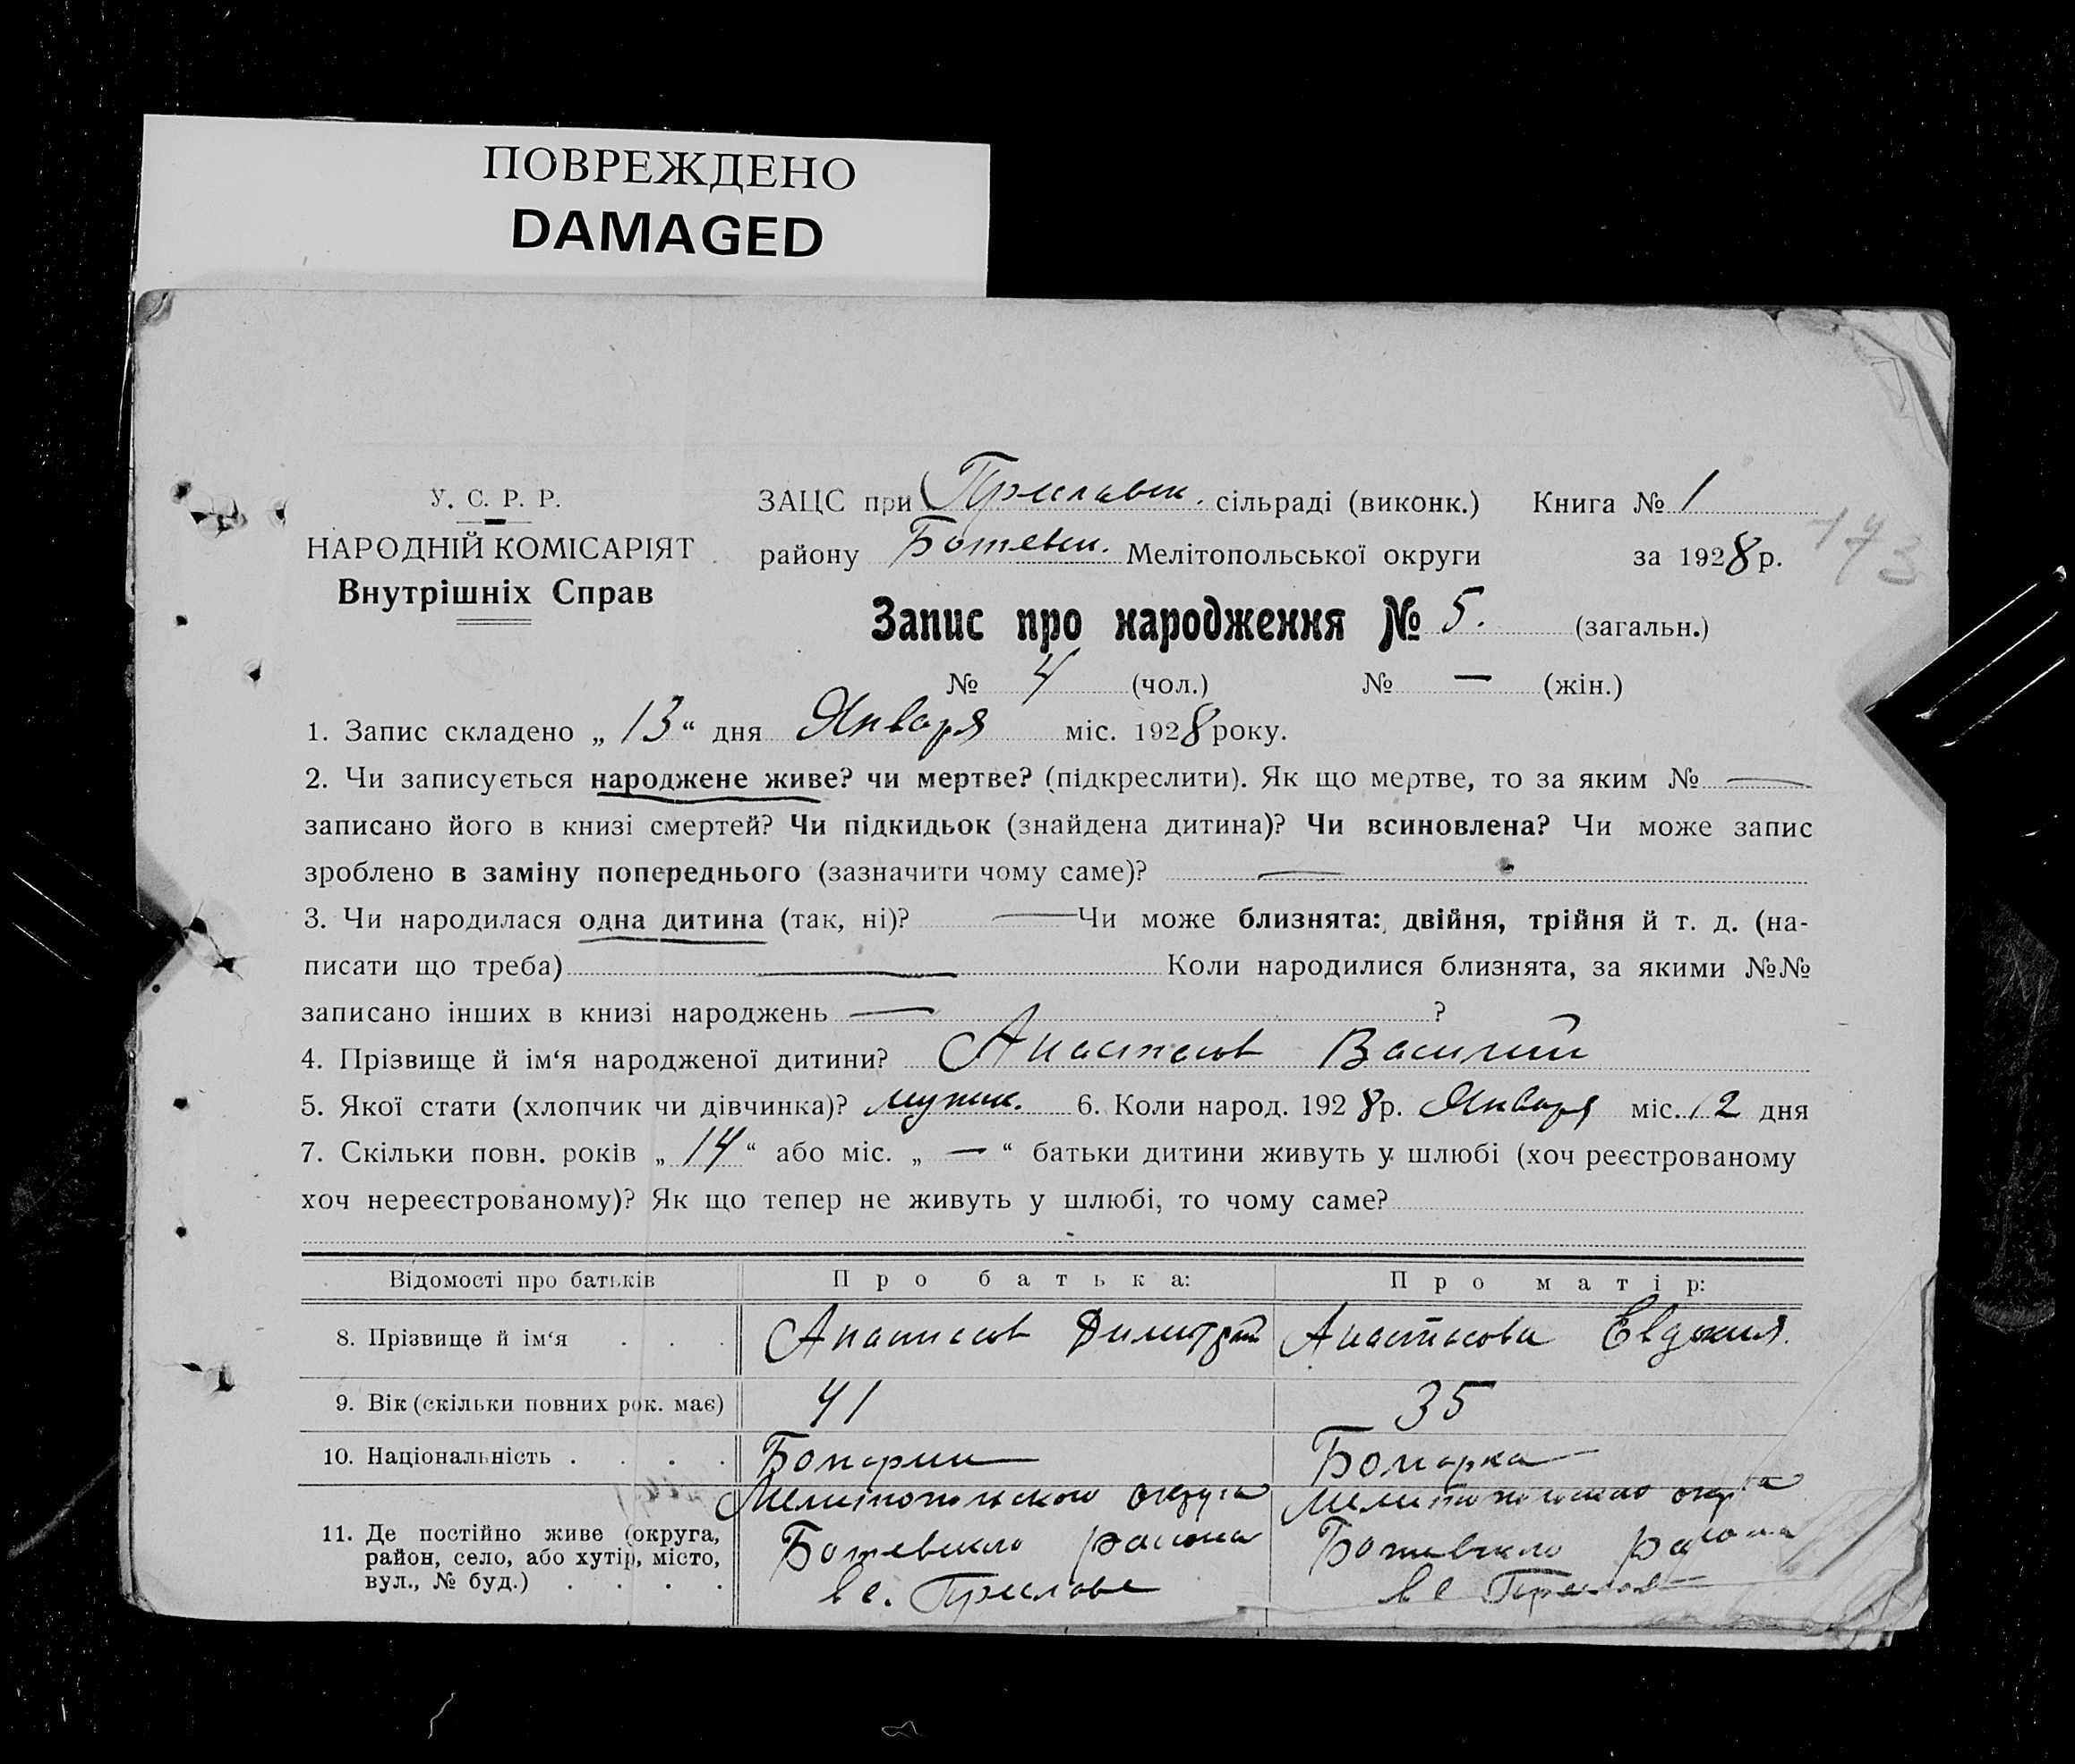 ПОВРЕЖДЕНО
DAMAGED
У. С. Р. Р.
НАРОДНІЙ КОМІСАРІЯТ
Внутрішніх Справ
ЗАЦС при Преславск. сільраді (виконк.) Книга № 1
району Ботевск. Мелітопольської округи за 1928 р.
173
Запис про народження № 5. (загальн.)
№ 4 (чол.) № — (жін.)
1. Запис складено „ 13 “ дня Января міс. 1928 року.
2. Чи записується народжене живе? чи мертве? (підкреслити). Як що мертве, то за яким № —
записано його в книзі смертей? Чи підкидьок (знайдена дитина)? Чи всиновлена? Чи може запис
зроблено в заміну попереднього (зазначити чому саме)? —
3. Чи народилася одна дитина (так, ні)? — Чи може близнята: двійня, трійня й т. д. (на-
писати що треба) — Коли народилися близнята, за якими №№
записано інших в книзі народжень — ?
4. Прізвище й ім‘я народженої дитини? Анастасов Василий
5. Якої стати (хлопчик чи дівчинка)? мужск. 6. Коли народ. 1928 р. Января міс. 12 дня
7. Скільки повн. років „ 14 “ або міс. „ — “ батьки дитини живуть у шлюбі (хоч реєстрованому
хоч нереєстрованому)? Як що тепер не живуть у шлюбі, то чому саме?
Відомості про батьків Про батька: Про матір:
8. Прізвище й ім‘я . . . Анастасов Димитрий Анастасова Евдокия.
9. Вік (скільки повних рок. має) 41 35
10. Національність . . . . Болгарин Болгарка
11. Де постійно живе (округа, район, село, або хутір, місто, вул., № буд.) . . . .
Мелитопольского округа
Ботевского района
в с. Преслове
Мелитопольского округа
Ботевского района
в с Преслов